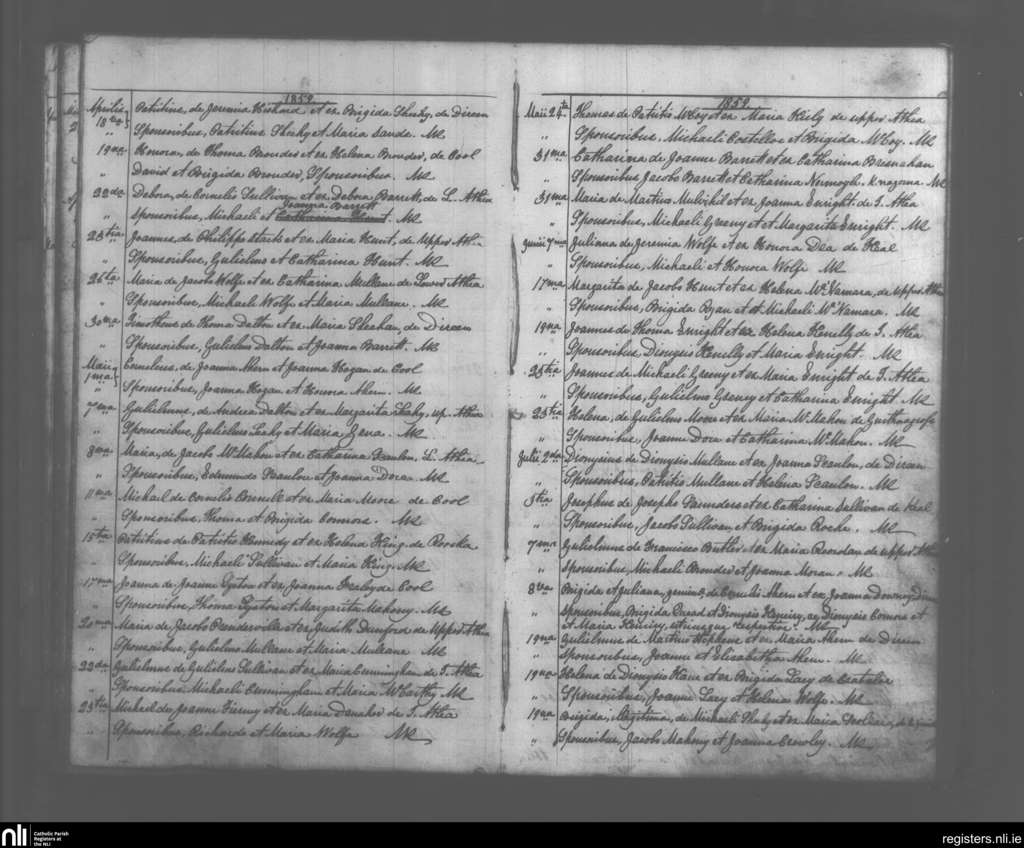 1859
Aprilis 18va Patritius, de Jeremia et ex Brigida Sheehy, de Direen
" Sponsoribus, Patritius Sheehy et Maria Sands. MR
19na Honora, de Thoma Brouder et ex Helena Brouder, de Cool
" David et Brigida Brouder, Sponsoribus. MR
22da Debra, de Cornelio Sullivan et ex Debra Barrett, de L. Athea
Joanna Barrett
" Sponsoribus, Michaeli et Catharina Hunt. MR
25tia Joannes, de Philippo Stack et ex Maria Hunt, de Upper Athea
" Sponsoribus, Gulielmo et Catharina Hunt. MR
26ta Maria de Jacobo Wolfe et ex Catharina Mullane de Lower Athea
" Sponsoribus, Michaeli Wolfe et Maria Mullane. MR
30ma Timotheus de Thoma Dalton et ex Maria Sheahan, de Direen
" Sponsoribus, Gulielmo Dalton et Joanna Barrett. MR
Maii 1ma Cornelius, de Joanna Ahern et Joanna Hogan de Cool
" Sponsoribus, Joanna Hogan et Honora Ahern. MR
7ma Gulielmus, de Andrea Dalton et ex Margarita Leahy, up. Athea
" Sponsoribus, Gulielmo Leahy et Maria MR
8va Maria, de Jacobo McMahon et ex Catharina Scanlon, L. Athea
" Sponsoribus, Edmundo Scanlon et Joanna Dore. MR
11ma Michael de Cornelio Connell et ex Maria Moore de Cool
" Sponsoribus, Thoma et Brigida Connors. MR
15ta Patritius de Patritio Kennedy et ex Helena King, de Rooska
" Sponsoribus, Michaeli Sullivan et Maria King. MR
17ma Joanna de Joanne et ex Joanna de Cool
" Sponsoribus, Thoma et Margarita Mahony. MR
20ma Maria de Jacobo Vandervill et ex Judith Danford de Upper Athea
" Sponsoribus, Gulielmo Mullane et Maria Mullane MR
22da Gulielmus de Gulielmo Sullivan et ex Maria Cunningham de T. Athea
" Sponsoribus Michaeli Cunningham et Maria McCarthy MR
23tia Michael de Joanne Tierney et ex Maria Danaher de T. Athea
" Sponsoribus, Richardo et Maria Wolfe MR
1859.
Maii 24ta Thomas de Patritio McCoy et ex Maria Kiely de upper Athea
" Sponsoribus, Michaeli Costelloe et Brigida McCoy. MR
31ma Catharina de Joanne Barrett et ex Catharina Bresnahan
" Sponsoribus Jacobo Barrett et Catharina Knagoma MR
31ma Maria de Martius Mulvihil et ex Joanna Enright de T. Athea
" Sponsoribus, Michaeli Greeny et Margarita Enright. MR
Junii 7ma Juliana de Jeremia Wolfe et ex Honora Dea de Keal
" Sponsoribus, Michaeli et Honora Wolfe MR
17ma Margarita de Jacobo Hunt et ex Helena McNamara, de upper Athea
" Sponsoribus, Brigida Ryan et Michaeli McNamara. MR
19na Joannes de Thoma Enright et ex Helena Kenelly de T. Athea
" Sponsoribus Dionysio Kenelly et Maria Enright. MR
25tia Joannes de Michaeli Greeny et ex Maria Enright de T. Athea
" Sponsoribus, Gulielmo Greeny et Catharina Enright MR
25tia Helena, de Gulielmo Moore et ex Maria McMahon de
" Sponsoribus, Joanne Dore et Catharina McMahon. MR
Julii 2nda Dionysius de Dionysio Mullane et ex Joanna Scanlon, de Direen
" Sponsoribus, Patritio Mullane et Helena Scanlon. MR
3tia Josephus de Josepho Saunders et ex Catharina Sullivan de Keal
" Sponsoribus, Jacobo Sullivan et Brigida Roche. MR
7ma Gulielmus de Francisco Butler et ex Maria Reordan de upper Athea
" Sponsoribus, Michaeli Brouder et Joanna Moran. MR
8va Brigida et Juliana, gemini, de Cornelio Ahern et ex Joanna Downey Direen
" Sponsoribus, Brigida et Dionysio ac Dionysio Connors et
et Maria utrinque respective. MR
19na Gulielmus de Martius Stephens et ex Maria Ahern de Direen
" Sponsoribus, Joanne et Elisabetha Ahern. MR
19na Helena de Dionysio Kane et ex Brigida Lacy de
" Sponsoribus, Joanne Lacy et Helena Wolfe. MR
19na Brigida, illegitima, de Michaeli Sheehy et ex Maria
" Sponsoribus, Jacobo Mahony et Joanna Crowley. MR
nli
Catholic Parish
Registers at
the NLI
registers.nli.ie